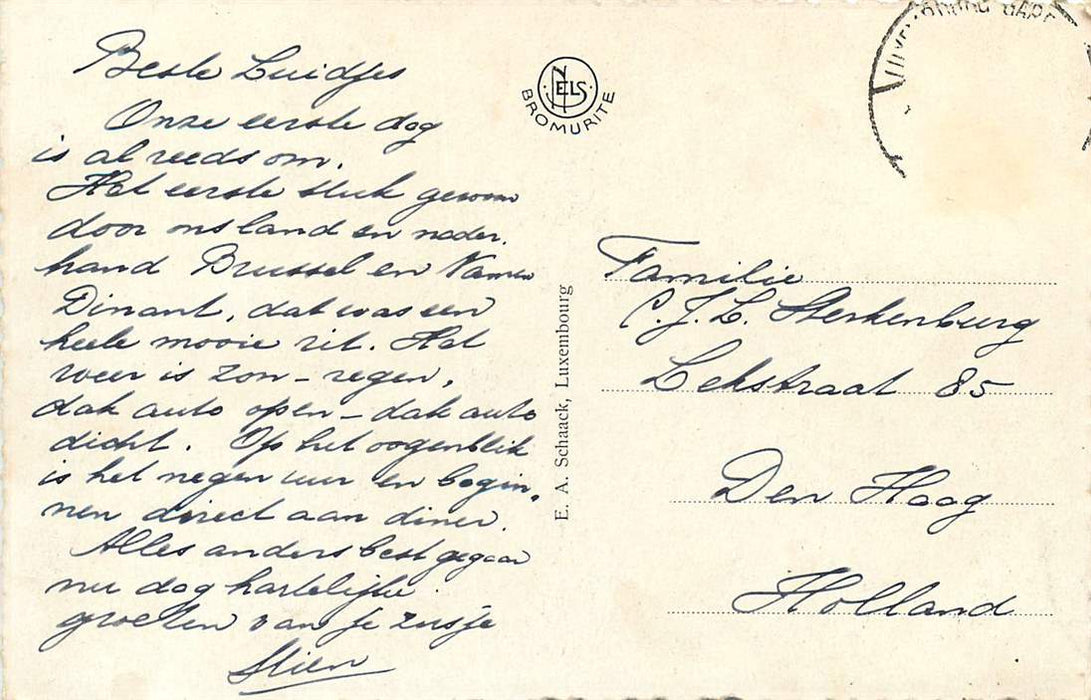 Beste Luidjes
Onze eerste dag
is al reeds om.
Het eerste stuk gewoon
door ons land en nader.
hand Brussel en Namen
Dinant, dat was een
hele mooie rit. Het
weer is zon - regen,
dak auto open - dak auto
dicht. Op het oogenblik
is het negen uur en begin,
nen direct aan diner.
Alles anders best gegaan
nu dag hartelijke
groeten van je zusje
Stien
NELS
BROMURITE
E. A. Schaack, Luxembourg
GARE
Familie
C. J. L. Sterkenburg
Lekstraat 85
Den Haag
Holland